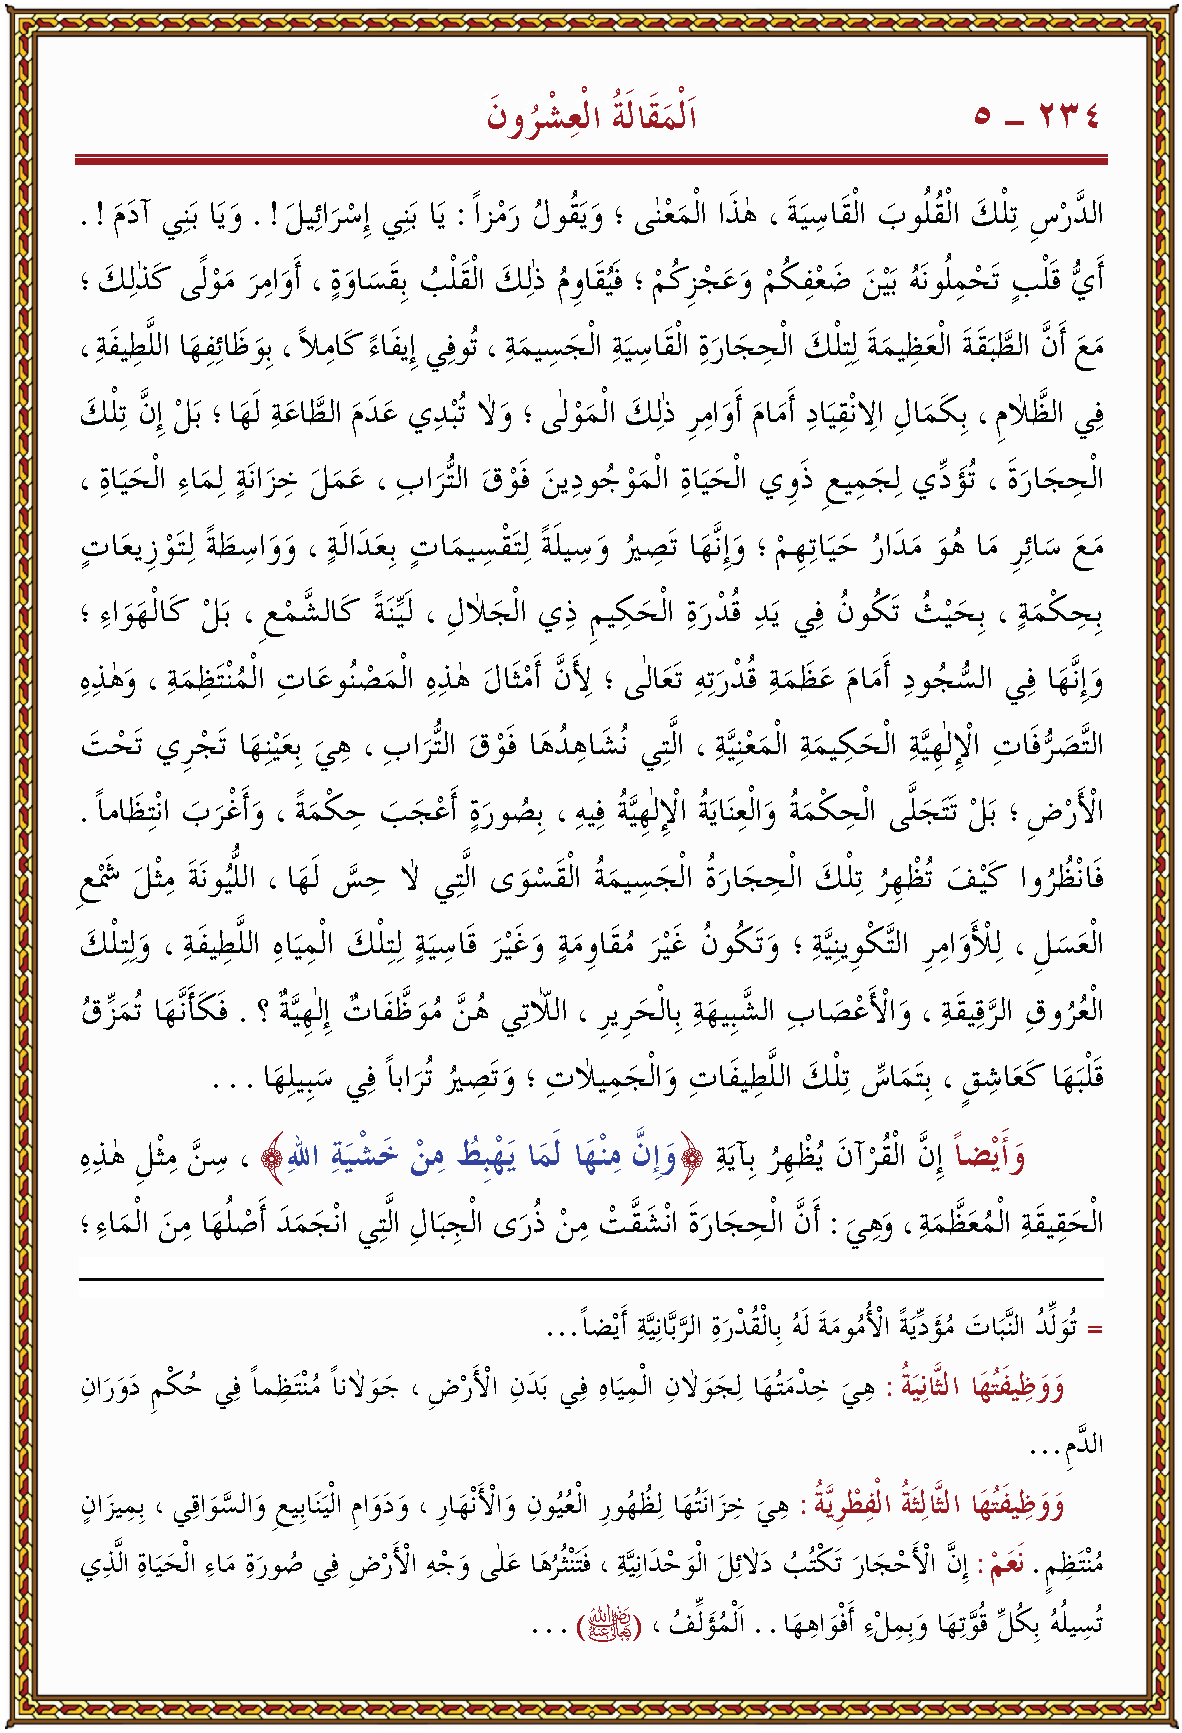 ٢٣٤ - ٥ اَلْمَقَالَةُ الْعِشْرُونَ
الدَّرْسِ تِلْكَ الْقُلُوبَ الْقَاسِيَةَ ، هٰذَا الْمَعْنٰى ؛ وَيَقُولُ رَمْزاً : يَا بَنِي إِسْرَائِيلَ ! . وَيَا بَنِي آدَمَ ! .
أَيُّ قَلْبٍ تَحْمِلُونَهُ بَيْنَ ضَعْفِكُمْ وَعَجْزِكُمْ ؛ فَيُقَاوِمُ ذٰلِكَ الْقَلْبُ بِقَسَاوَةٍ ، أَوَامِرَ مَوْلًى كَذٰلِكَ ؛
مَعَ أَنَّ الطَّبَقَةَ الْعَظِيمَةَ لِتِلْكَ الْحِجَارَةِ الْقَاسِيَةِ الْجَسِيمَةِ ، تُوفِي إِيفَاءً كَامِلاً ، بِوَظَائِفِهَا اللَّطِيفَةِ ،
فِي الظَّلاٰمِ ، بِكَمَالِ الْاِنْقِيَادِ أَمَامَ أَوَامِرِ ذٰلِكَ الْمَوْلٰى ؛ وَلاٰ تُبْدِي عَدَمَ الطَّاعَةِ لَهَا ؛ بَلْ إِنَّ تِلْكَ
الْحِجَارَةَ ، تُؤَدِّي لِجَمِيعِ ذَوِي الْحَيَاةِ الْمَوْجُودِينَ فَوْقَ التُّرَابِ ، عَمَلَ خِزَانَةٍ لِمَاءِ الْحَيَاةِ ،
مَعَ سَائِرِ مَا هُوَ مَدَارُ حَيَاتِهِمْ ؛ وَإِنَّهَا تَصِيرُ وَسِيلَةً لِتَقْسِيمَاتٍ بِعَدَالَةٍ ، وَوَاسِطَةً لِتَوْزِيعَاتٍ
بِحِكْمَةٍ ، بِحَيْثُ تَكُونُ فِي يَدِ قُدْرَةِ الْحَكِيمِ ذِي الْجَلاٰلِ ، لَيِّنَةً كَالشَّمْعِ ، بَلْ كَالْهَوَاءِ ؛
وَإِنَّهَا فِي السُّجُودِ أَمَامَ عَظَمَةِ قُدْرَتِهِ تَعَالٰى ؛ لِأَنَّ أَمْثَالَ هٰذِهِ الْمَصْنُوعَاتِ الْمُنْتَظِمَةِ ، وَهٰذِهِ
التَّصَرُّفَاتِ الْإِلٰهِيَّةِ الْحَكِيمَةِ الْمَعْنِيَّةِ ، الَّتِي نُشَاهِدُهَا فَوْقَ التُّرَابِ ، هِيَ بِعَيْنِهَا تَجْرِي تَحْتَ
الْأَرْضِ ؛ بَلْ تَتَجَلَّى الْحِكْمَةُ وَالْعِنَايَةُ الْإِلٰهِيَّةُ فِيهِ ، بِصُورَةٍ أَعْجَبَ حِكْمَةً ، وَأَغْرَبَ انْتِظَاماً .
فَانْظُرُوا كَيْفَ تُظْهِرُ تِلْكَ الْحِجَارَةُ الْجَسِيمَةُ الْقَسْوَى الَّتِي لاٰ حِسَّ لَهَا ، اللُّيُونَةَ مِثْلَ شَمْعِ
الْعَسَلِ ، لِلْأَوَامِرِ التَّكْوِينِيَّةِ ؛ وَتَكُونُ غَيْرَ مُقَاوِمَةٍ وَغَيْرَ قَاسِيَةٍ لِتِلْكَ الْمِيَاهِ اللَّطِيفَةِ ، وَلِتِلْكَ
الْعُرُوقِ الرَّقِيقَةِ ، وَالْأَعْصَابِ الشَّبِيهَةِ بِالْحَرِيرِ ، الاّٰتِي هُنَّ مُوَظَّفَاتٌ إِلٰهِيَّةٌ ؟ . فَكَأَنَّهَا تُمَزِّقُ
قَلْبَهَا كَعَاشِقٍ ، بِتَمَاسِّ تِلْكَ اللَّطِيفَاتِ وَالْجَمِيلاٰتِ ؛ وَتَصِيرُ تُرَاباً فِي سَبِيلِهَا . . .
وَأَيْضاً إِنَّ الْقُرْآنَ يُظْهِرُ بِآيَةِ ﴿وَإِنَّ مِنْهَا لَمَا يَهْبِطُ مِنْ خَشْيَةِ اللهِ﴾ ، سِنَّ مِثْلِ هٰذِهِ
الْحَقِيقَةِ الْمُعَظَّمَةِ ، وَهِيَ : أَنَّ الْحِجَارَةَ انْشَقَّتْ مِنْ ذُرَى الْجِبَالِ الَّتِي انْجَمَدَ أَصْلُهَا مِنَ الْمَاءِ ؛
= تُوَلِّدُ النَّبَاتَ مُؤَدِّيَةً الْأُمُومَةَ لَهُ بِالْقُدْرَةِ الرَّبَّانِيَّةِ أَيْضاً . . .
وَوَظِيفَتُهَا الثَّانِيَةُ : هِيَ خِدْمَتُهَا لِجَوَلاٰنِ الْمِيَاهِ فِي بَدَنِ الْأَرْضِ ، جَوَلاٰناً مُنْتَظِماً فِي حُكْمِ دَوَرَانِ
الدَّمِ . . .
وَوَظِيفَتُهَا الثَّالِثَةُ الْفِطْرِيَّةُ : هِيَ خِزَانَتُهَا لِظُهُورِ الْعُيُونِ وَالْأَنْهَارِ ، وَدَوَامِ الْيَنَابِيعِ وَالسَّوَاقِي ، بِمِيزَانٍ
مُنْتَظِمٍ . نَعَمْ : إِنَّ الْأَحْجَارَ تَكْتُبُ دَلاٰئِلَ الْوَحْدَانِيَّةِ ، فَتَنْثُرُهَا عَلٰى وَجْهِ الْأَرْضِ فِي صُورَةِ مَاءِ الْحَيَاةِ الَّذِي
تُسِيلُهُ بِكُلِّ قُوَّتِهَا وَبِمِلْءِ أَفْوَاهِهَا . . اَلْمُؤَلِّفُ ، (رَضِيَ اللهُ تَعَالَى عَنْهُ) . . .